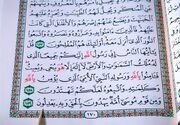 ٱلْخَبَٰٓئِثَ وَيَضَعُ عَنْهُمْ إِصْرَهُمْ وَٱلْأَغْلَٰلَ ٱلَّتِى كَانَتْ
عَلَيْهِمْ فَٱلَّذِينَ ءَامَنُوا۟ بِهِۦ وَعَزَّرُوهُ وَنَصَرُوهُ وَٱتَّبَعُوا۟
ٱلنُّورَ ٱلَّذِىٓ أُنزِلَ مَعَهُۥٓ أُو۟لَٰٓئِكَ هُمُ ٱلْمُفْلِحُونَ ١٥٧
قُلْ يَٰٓأَيُّهَا ٱلنَّاسُ إِنِّى رَسُولُ ٱللَّهِ إِلَيْكُمْ جَمِيعًا
ٱلَّذِى لَهُۥ مُلْكُ ٱلسَّمَٰوَٰتِ وَٱلْأَرْضِ لَآ إِلَٰهَ إِلَّا هُوَ يُحْىِۦ وَيُمِيتُ
فَـَٔامِنُوا۟ بِٱللَّهِ وَرَسُولِهِ ٱلنَّبِىِّ ٱلْأُمِّىِّ ٱلَّذِى يُؤْمِنُ بِٱللَّهِ
وَكَلِمَٰتِهِۦ وَٱتَّبِعُوهُ لَعَلَّكُمْ تَهْتَدُونَ ١٥٨
وَمِن قَوْمِ مُوسَىٰٓ أُمَّةٌ يَهْدُونَ بِٱلْحَقِّ وَبِهِۦ يَعْدِلُونَ ١٥٩
١٧٠